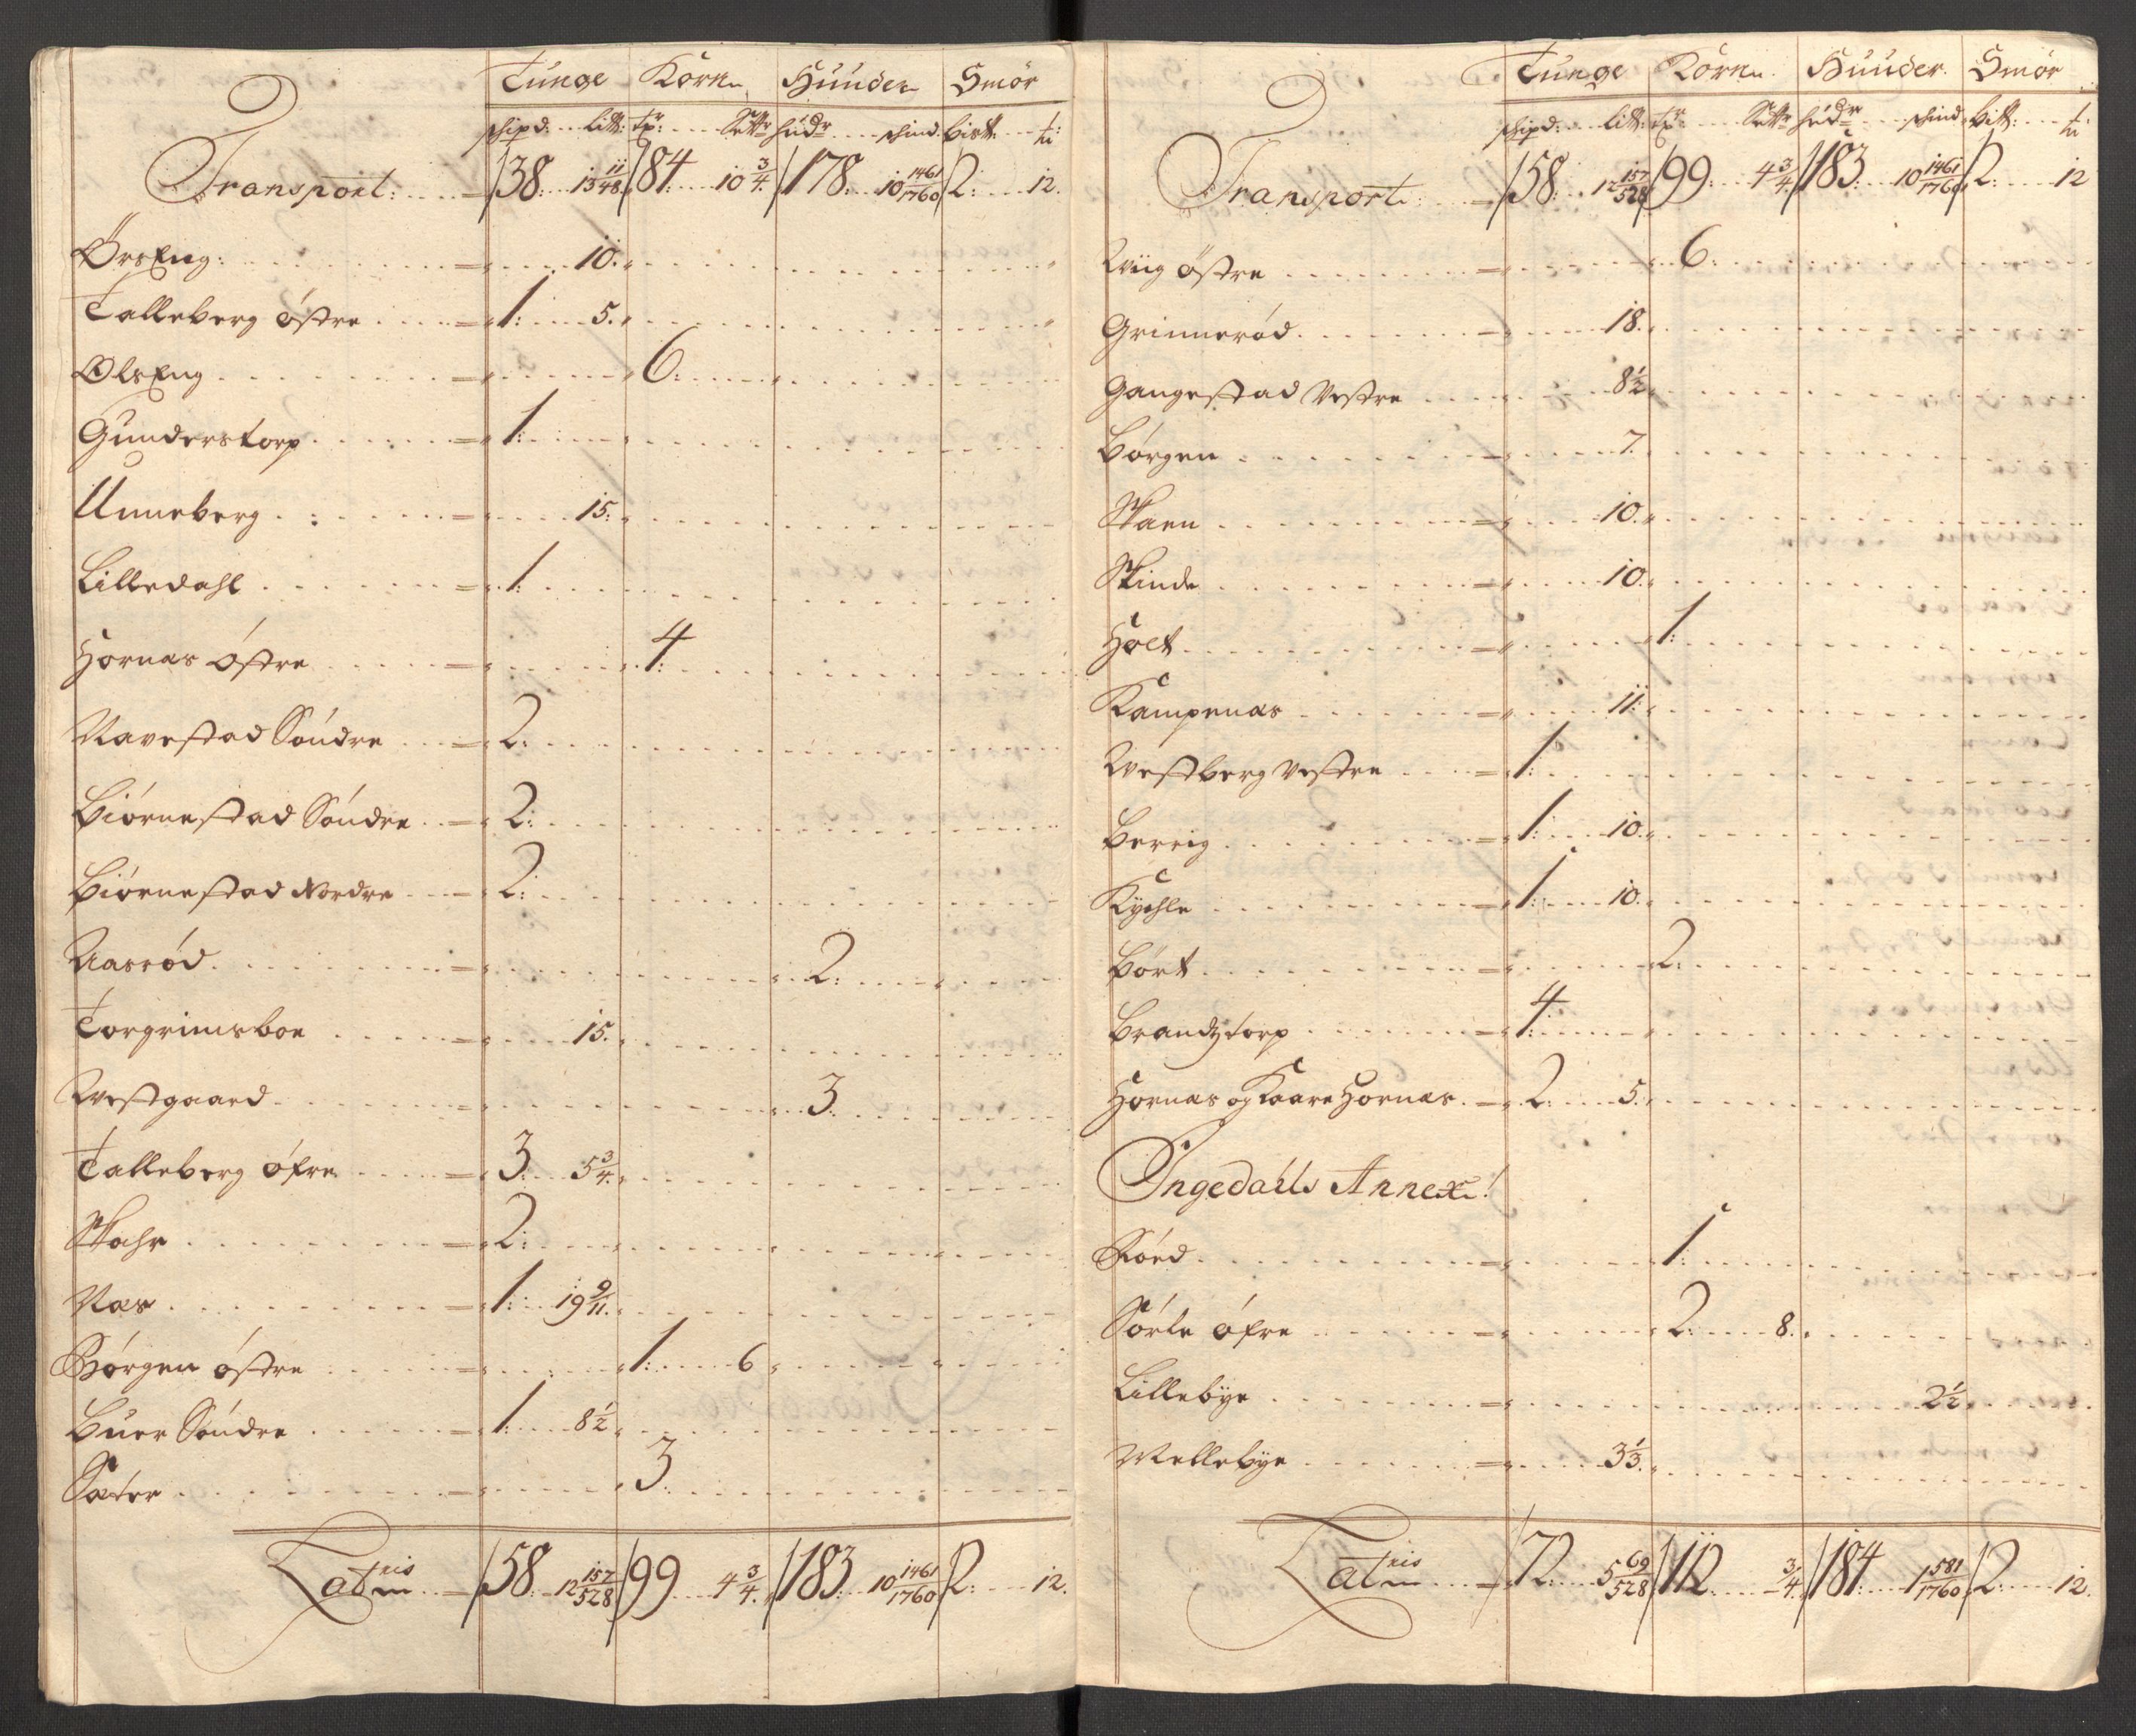 Tunge Korn Huuder Smör
skipd: litt: tr: Sett hudr skind bitt: tr
Transport: 38: 13 11/48 84: 10 3/4 178: 10 1461/1760 2: 12.
ÖrsEng: 10.
Talleberg östre 1: 5.
OlsEng 6:
Gunderstorp 1:
Unneberg 15:
Lilledahl 1:
Hornæs östre 4:
Navestad Söndre 2:
Biörnestad Söndre 2:
Biörnestad Nordre 2:
Aasröd 2:
Torgrimsboe 15.
Westgaard 3.
Talleberg öfre 3: 5 3/4
Skahr 2:
Næs 1: 19 9/11.
Börgen östre 1: 6
Buer Söndre 1: 8 1/2
Sæter 3:
Lateris 58: 12 157/528 99 4 3/4 183: 10 1461/1760 2: 12.
Tunge Korn Huuder Smör
skipd: litt: tr: Sett hudr skind bitt: tr
Transport: 58: 12 157/528 99: 4 3/4 183: 10 1461/1760 2: 12
Wiig östre 6:
Grimeröd 18.
Gangestad Vestre 8 1/2
Börgen 7.
Skaen 10.
Skinde 10.
Holt 1:
Kampenæs 11:
Westberg Vestre 1:
Berrig 1: 10.
Kychle 1: 10.
Bört 2:
Brandztorp 4:
Hornæs og Kaare Hornæs 2: 5.
Ingedahls Annex!
Röed 1:
Sörle öfre 2: 8.
Lillebÿe 2 1/2
Mellebÿe 3 1/3.
Lateris 72: 5 69/528 112 3/4 184: 1 581/1760 2: 12.